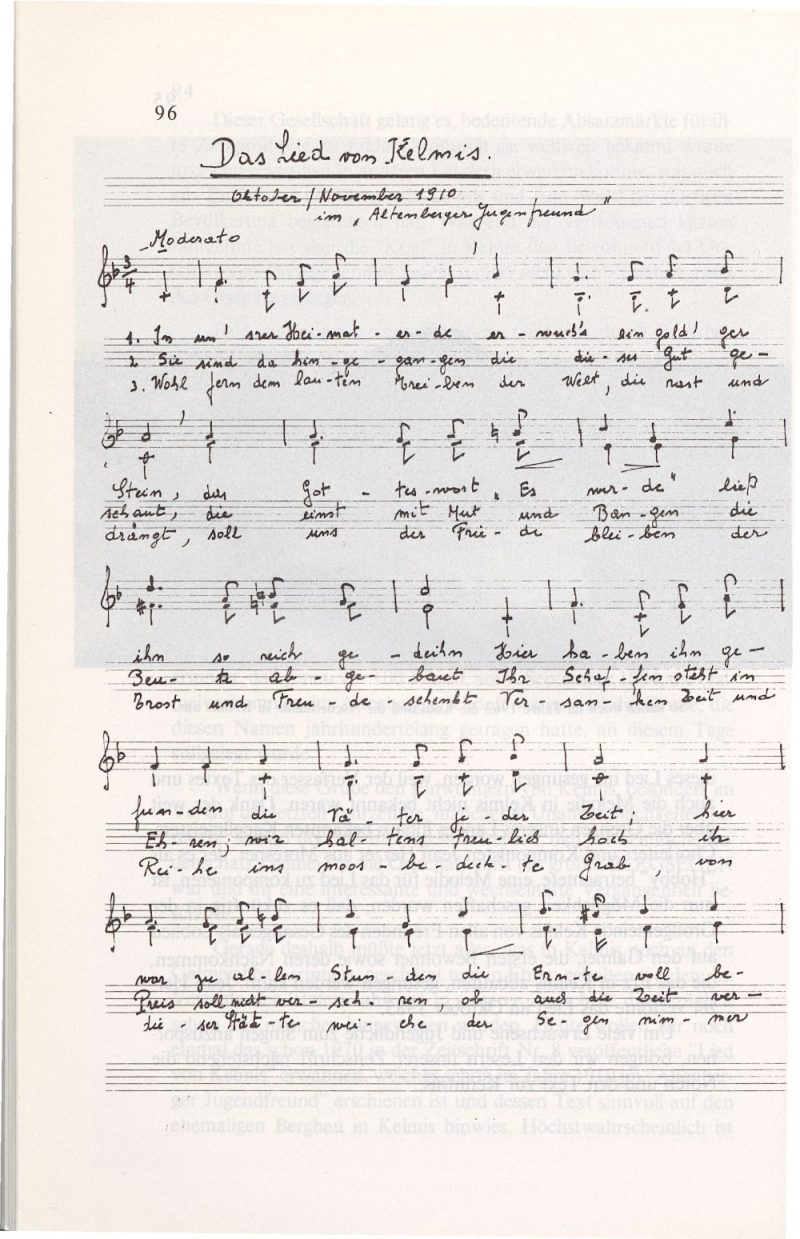 96
Das Lied von Kelmis.
Oktober / November 1910
im „Altenberger Jugenfreund"
Moderato
3/4
1. In un' srer Hei-mat-er-de er-wuchs ein gold' ger
2. Sie sind da hin-ge-gan-gen die die-ses Gut ge-
3. Wohl fern dem lau-ten Trei-ben der Welt, die rast und
Stein, das Got-tes-wort „Es wer-de" ließ
schaut, die einst mit Mut und Ban-gen die
drängt, soll uns der Frie-de blei-ben der
ihn so reich ge-deihn Hier ha-ben ihn ge-
Beu-te ab-ge-baut Ihr Schaf-fen steht in
Trost und Freu-de-schenkt Ver-san-ken Zeit und
fun-den die Vä-ter je-der Zeit; hier
Eh-ren; wir hal-tens treu-lich hoch ihr
Rei-he ins moos-be-deck-te Grab, von
war zu al-len Stun-den die Ern-te voll be-
Preis soll nicht ver-seh-ren, ob auch die Zeit ver-
die-ser Stät-te wei-che der Se-gen nim-mer
Dieser Gesellschaft gelang es, bedeutende Absatzmärkte für ih-
diesen Namen jahrhundertelang getragen hatte, an diesem Tage
ger Jugendfreund" erschienen ist und dessen Text sinnvoll auf den
ehemaligen Bergbau in Kelmis hinwies. Höchstwahrscheinlich ist